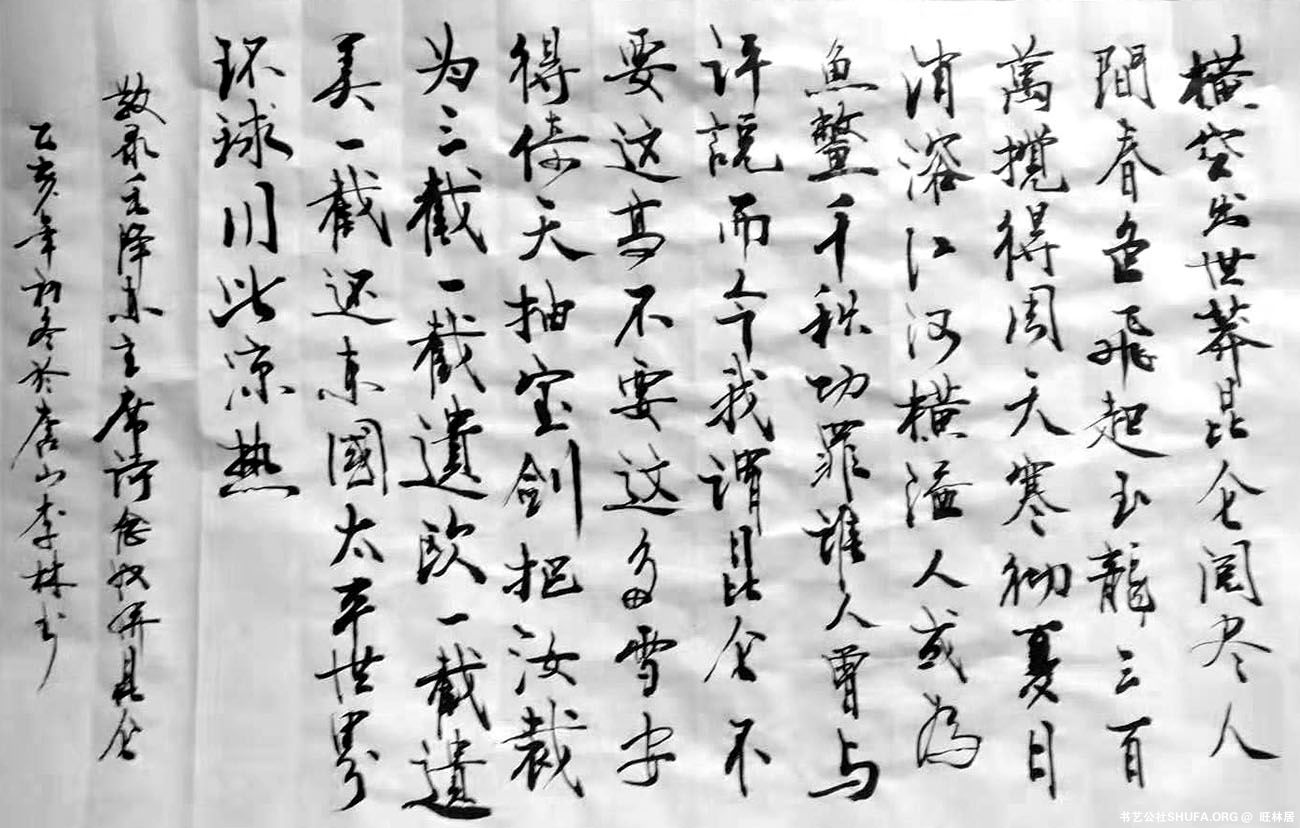 橫空出世莽昆仑阅尽人
間春色飛起玉龍三百
萬攪得周天寒彻夏日
消溶江河横溢人或為
魚鳖千秋功罪谁人曾与
评説而今我謂昆仑不
要这高不要这多雪安
得倚天抽宝劍把汝裁
为三截一截遺欧一截遺
美一截还东國太平世界
环球同此凉热
敬录毛泽东主席词念奴娇昆仑
乙亥年初冬於唐山李林书
书艺公社SHUFA.ORG @ 旺林居